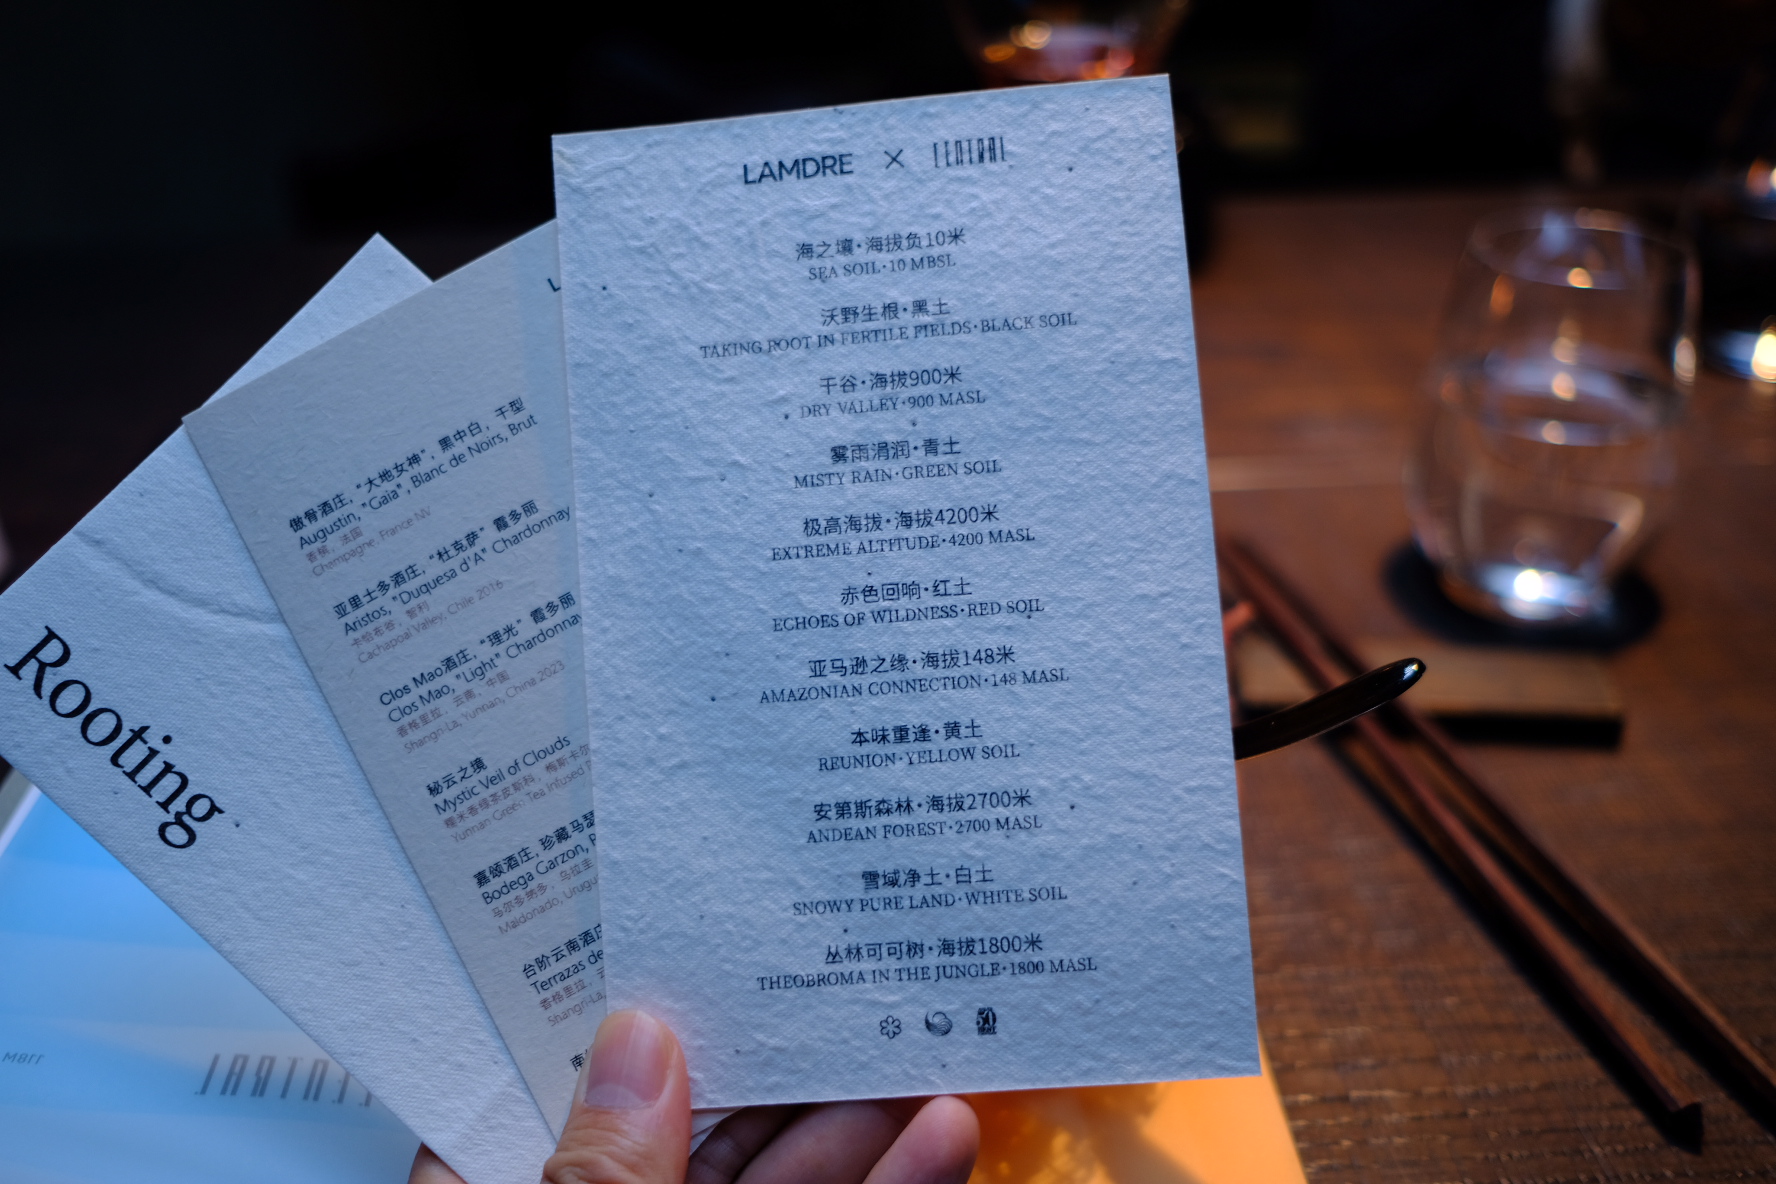 LAMDRE × CENTRAL
海之壤·海拔负10米
SEA SOIL·10 MBSL
沃野生根·黑土
TAKING ROOT IN FERTILE FIELDS·BLACK SOIL
干谷·海拔900米
DRY VALLEY·900 MASL
雾雨涓润·青土
MISTY RAIN·GREEN SOIL
极高海拔·海拔4200米
EXTREME ALTITUDE·4200 MASL
赤色回响·红土
ECHOES OF WILDNESS·RED SOIL
亚马逊之缘·海拔148米
AMAZONIAN CONNECTION·148 MASL
本味重逢·黄土
REUNION·YELLOW SOIL
安第斯森林·海拔2700米
ANDEAN FOREST·2700 MASL
雪域净土·白土
SNOWY PURE LAND·WHITE SOIL
丛林可可树·海拔1800米
THEOBROMA IN THE JUNGLE·1800 MASL
50
L
傲骨酒庄，“大地女神”，黑中白，干型
Augustin, "Gaia", Blanc de Noirs, Brut
香槟，法国
Champagne, France NV
亚里士多酒庄，“杜克萨” 霞多丽
Aristos, "Duquesa d'A" Chardonnay
卡恰布谷，智利
Cachapoal Valley, Chile 2016
Clos Mao酒庄，“理光” 霞多丽
Clos Mao, "Light" Chardonnay
香格里拉，云南，中国
Shangri-La, Yunnan, China 2023
秘云之境
Mystic Veil of Clouds
糯米香绿茶皮斯科，梅斯卡尔
Yunnan Green Tea Infused
嘉颂酒庄，珍藏马瑟
Bodega Garzon,
马尔多纳多，乌拉圭
Maldonado, Urugu
台阶云南酒庄
Terrazas de
香格里拉，
Shangri-La,
南
Rooting
CENTRAL